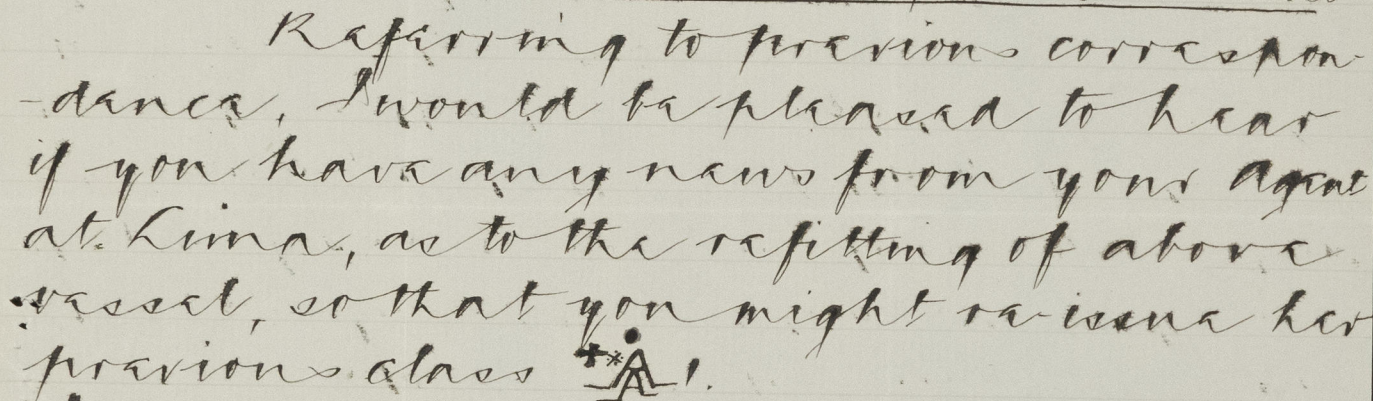 Referring to previous correspon-
-dence, I would be pleased to hear
if you have any news from your Agent
at Lima, as to the refitting of above
vessel, so that you might re-issue her
previous class